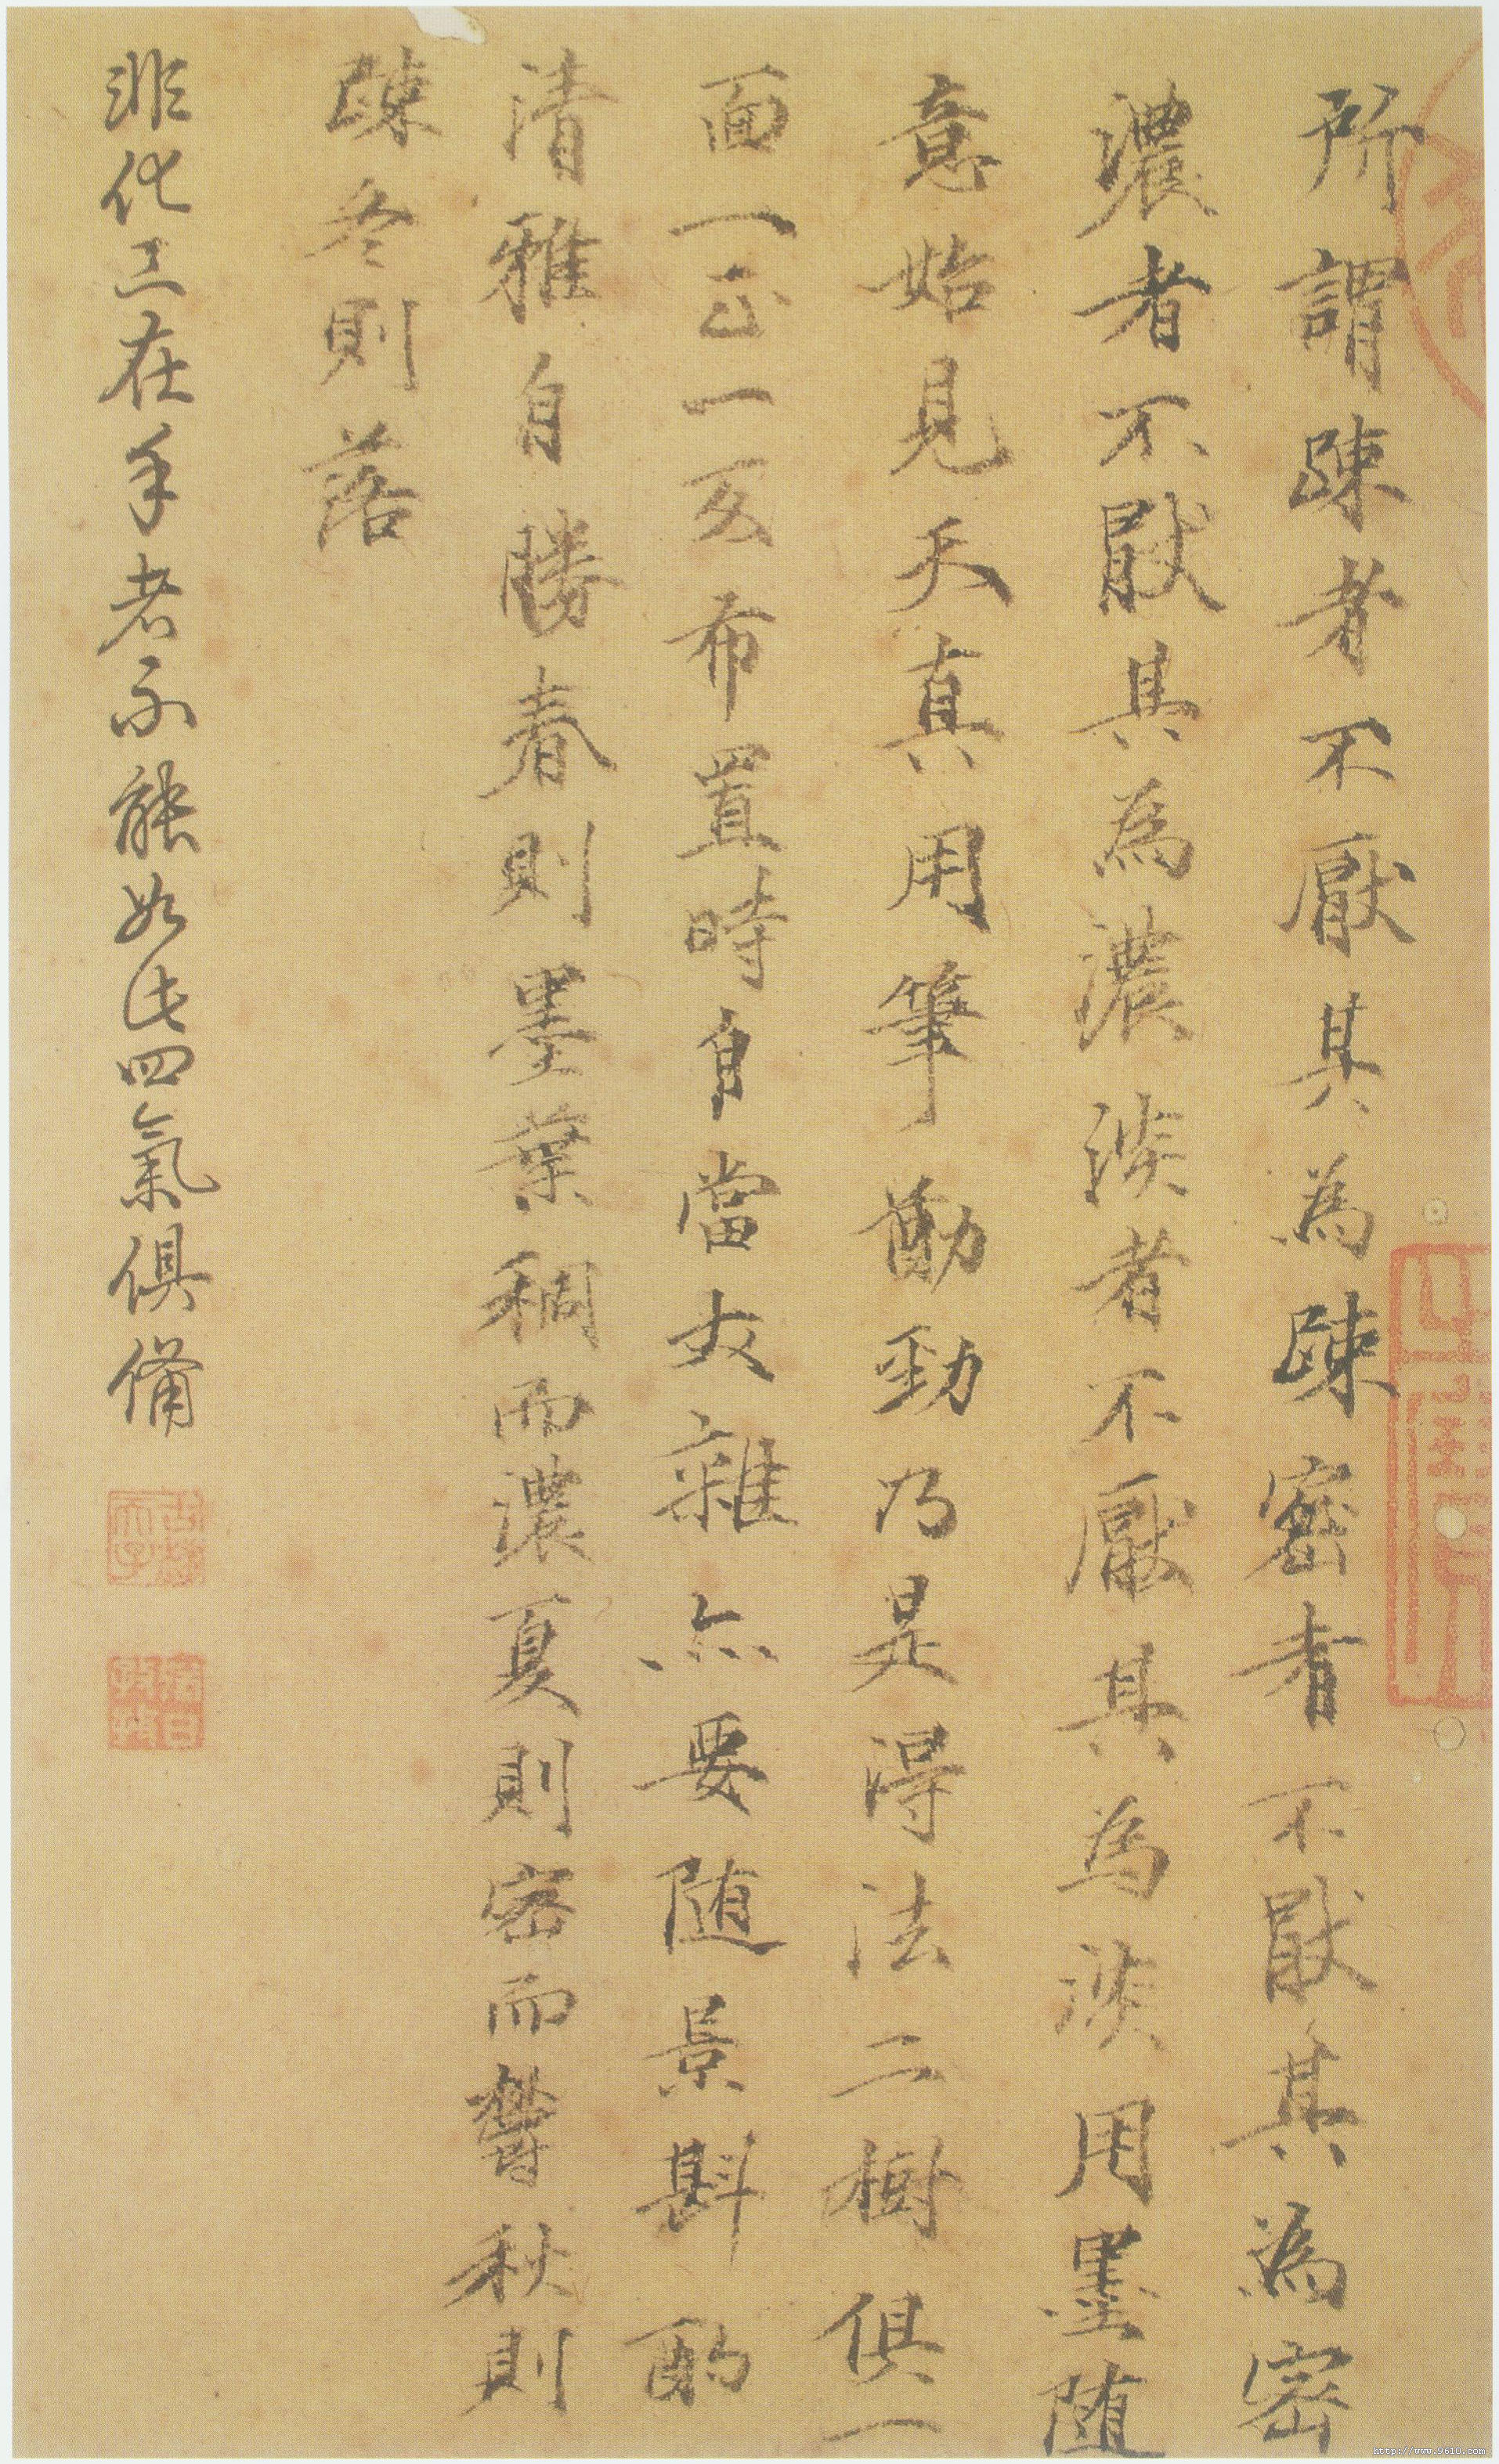 所謂疎者不厭其為疎密者不猒其為密
濃者不猒其為濃淡者不厭其為淡用墨随
意始見天真用筆勤勁乃是得法二樹俱一
面一正一反布置時自當交雜亦要随景斟酌
清雅自勝春則墨葉稠而濃夏則密而鬱秋則
疎冬則落
非化工在手者不能如此四氣俱備
http://www.9610.com